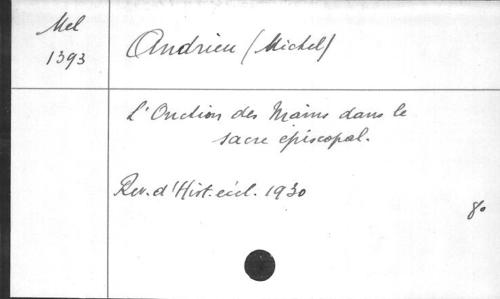 Mel
1393
Andrieu (Michel)
L'Onction des Mains dans le
sacre épiscopal.
Rev. d'Hist. eccl. 1930
8°